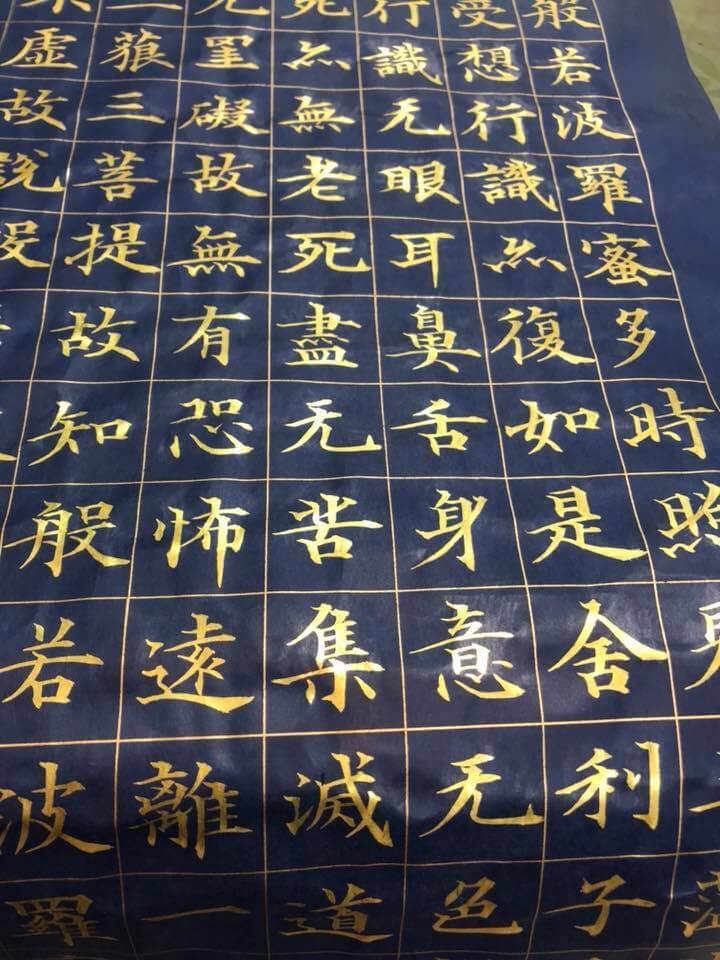 般若波羅蜜多時照
受想行識亦復如是舍利子
行識无眼耳鼻舌身意无色
死亦無老死盡无苦集滅道
无罣礙故無有恐怖遠離一
藐三菩提故知般若波羅
不虛故說般